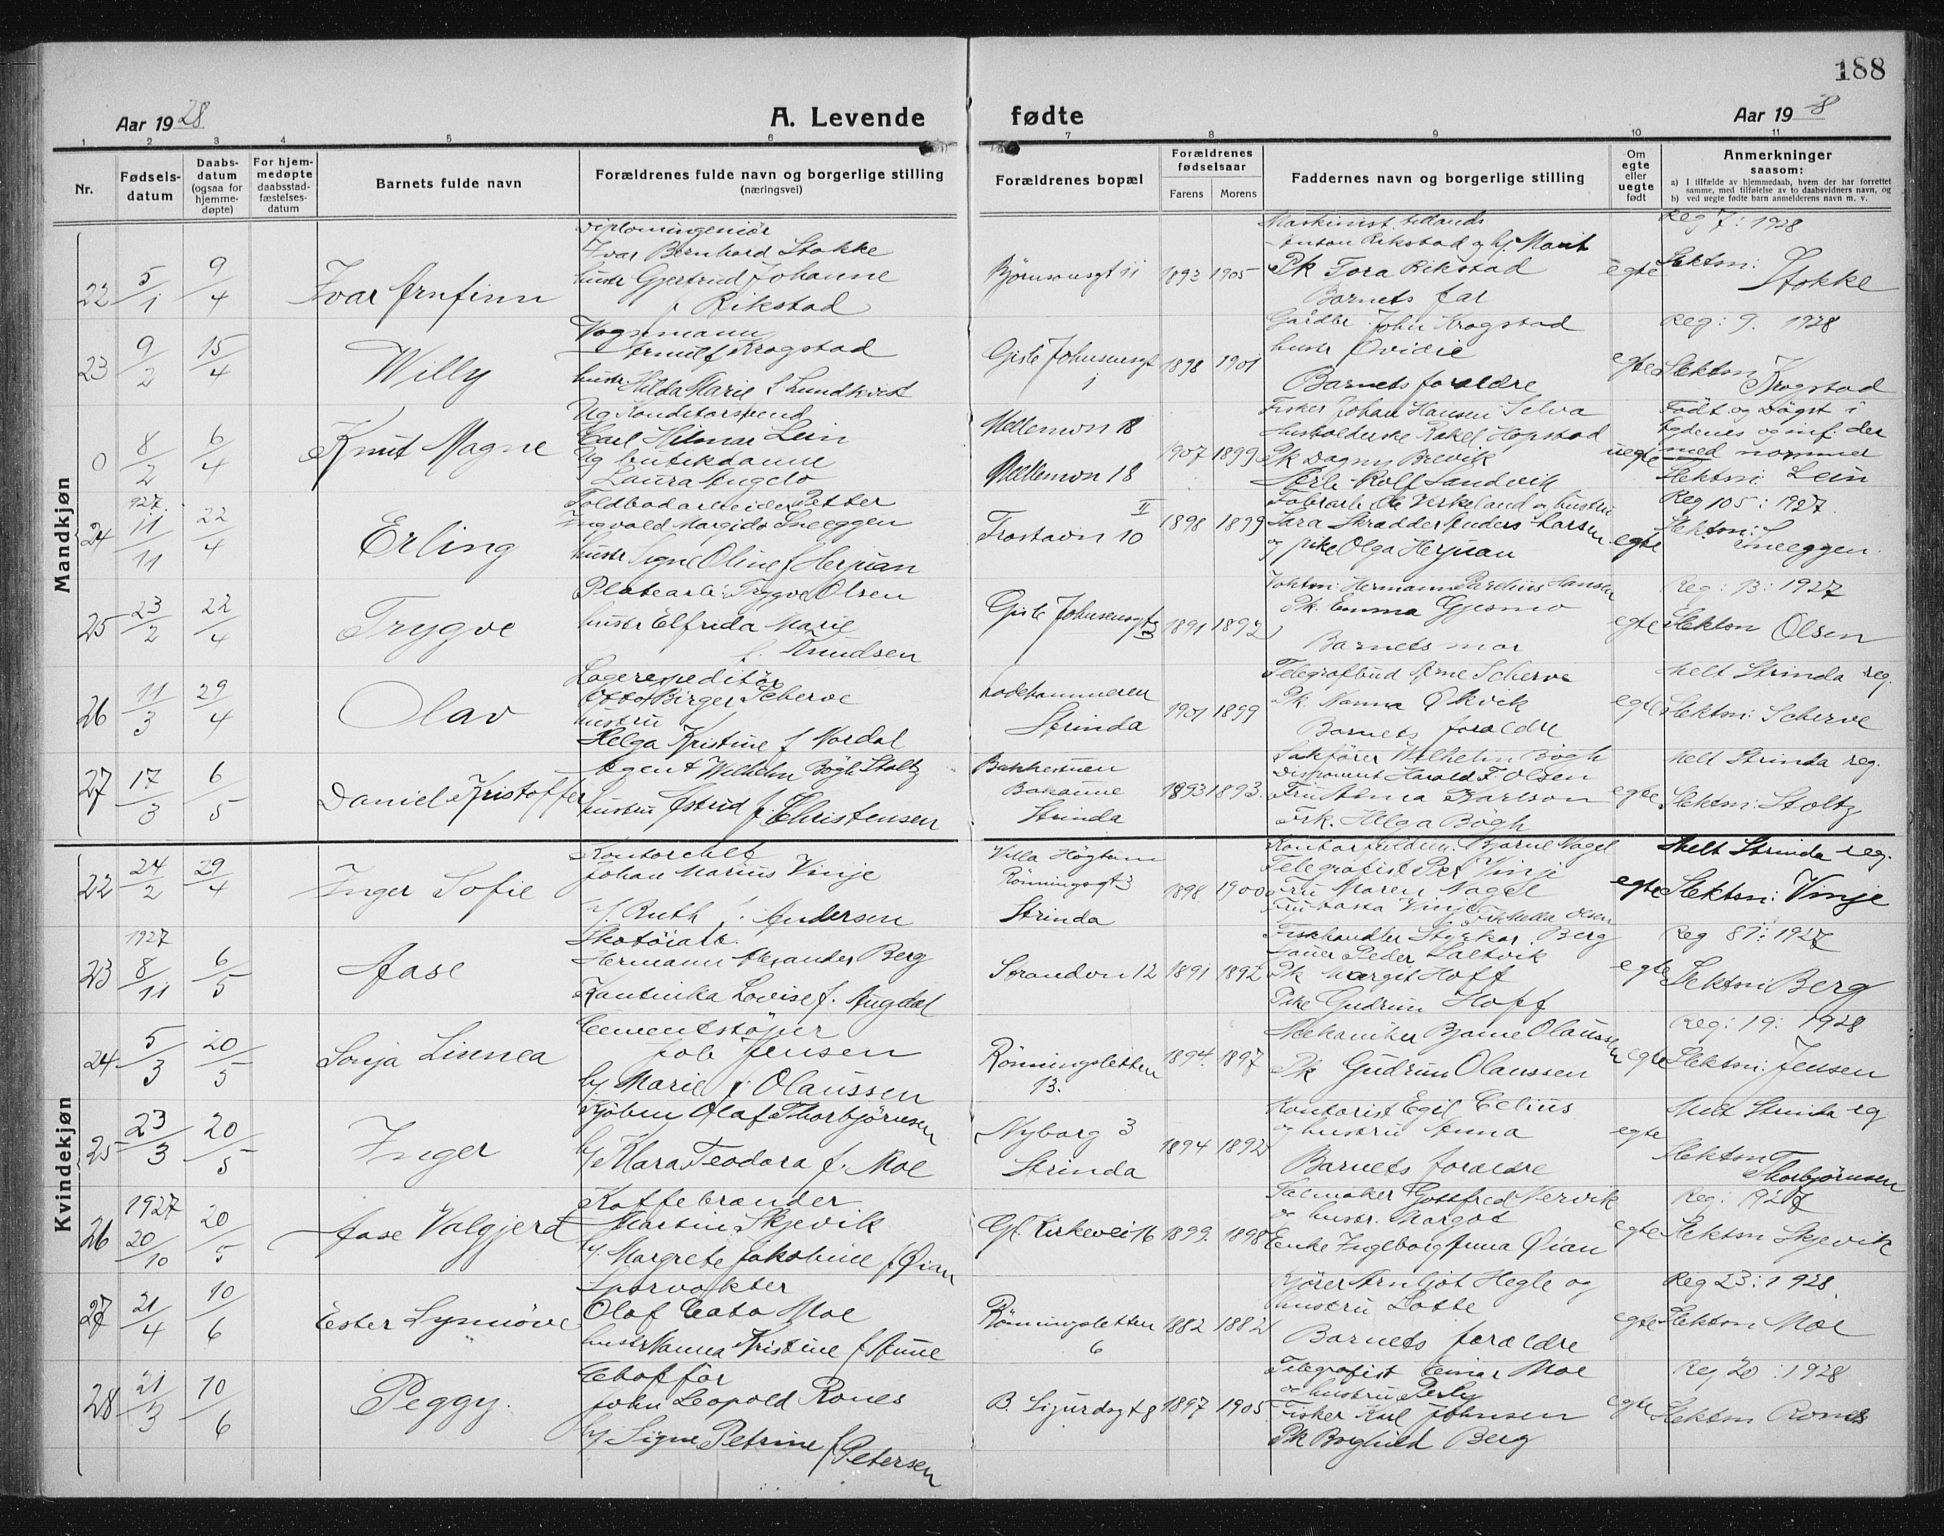 188
Aar 1928
A. Levende
fødte
Aar 19 8
1 2 3 4 5 6 7 8 9 10 11
Nr.
Fødsels-
datum
Daabs-
datum
(ogsaa for
hjemme-
døpte)
For hjem-
medøpte
daabsstad-
fæstelses-
datum
Barnets fulde navn
Forældrenes fulde navn og borgerlige stilling
(næringsvei)
Forældrenes bopæl
Forældrenes
fødselsaar
Farens
Morens
Faddernes navn og borgerlige stilling
Om
egte
eller
uegte
født
Anmerkninger
saasom:
a) I tilfælde av hjemmedaab, hvem der har forrettet
samme, med tilføielse av to daabsvidners navn, og
b) ved uegte fødte barn anmelderens navn m. v.
Mandkjøn
22 5/1 9/4 Ivar Arnfinn
Diplomingeniør
Ivar Bernhard Stokke
hustr Gjertrud Johanne
f Rikstad
1893 1905
Anton Rikstad og hj. Marit
Pk Tora Rikstad
Barnets far
egte
Reg 7: 1928
Slektsn:
Stokke
23 9/2 15/4 Willy
Vognmann
Arnulf Krogstad
hustr Hilda Marie f Lundkvist
Gisle Johnsensgt
1
1898 1901
Gårdbr John Krogstad
hustr Ovidie
Barnets foraldre
egte
Reg: 9. 1928
Slektsn
Krogstad
0 8/2 6/4 Knut Magne
Ug Konditorsvend
Carl Hilmar Lein
Ug butikdame
Laura Angelo
Mellemvn 18
Mellemvn 18
1907 1899
Fisker Johan Hansen Selva
Husholderske Rakel Hopstad
Pk Dagny Brevik
Rolf Sandvik
uegte
Født og Døgst i
med nommer
Slektsn Lein
24 927. 11/11 22/4 Erling
Toldbodarbeider Petter
Ingvald Margido Sneeggen
hustr Signe Oline f Herjuan
Frostavn 10 II
1898 1899
Fabrarb Ole Virkeland og hustru
Sara Skradder Anders Larsen
og pike Olga Herjuan
egte
Reg 105: 1927.
Slektsn: Sneeggen
25 23/2 22/4 Trygve
Platearb: Trygve Olsen
hustr Elfrida Marie
f. Knudsen
Gisle Johnsensgt 3
1891 1892
Pk. Emma Gjesmo
Barnets mor
egte
Reg: 13: 1927
Slektsn Olsen
26 11/3 29/4 Olav
Lagerexpeditør
Otto Birger Scherve
hustru
Helga Kristine f Nordal
Ladehammeren
Strinda
1901 1899
Telegrafbud Arne Scherve
Pk. Nanna Økvik
Barnets foraldre
egte
Melt Strinda reg.
Slektsn: Scherve
27 17/3 6/5 Daniel Kristoffer
Agent Wilhelm Bøgh Stoltz
hustru Astrid f. Christensen
Strinda
1893 1893.
Sakfører Wilhelm Bøgh
Disponent Harald F Olsen
Fru Alma Karlson
Frk. Helga Bøgh
egte
Melt Strinda reg.
Slektsn: Stoltz
Kvindekjøn
22 24/2 29/4 Inger Sofie
Kontorchef
Johan Marius Vinje
hj. Ruth f. Andersen
Villa Høgtun
Rønningsgt 3
Strinda
1898. 1900
Bjarne Nagel
Telegrafist Per Vinje
Fru Maren Nagel
Fru Aasta Vinje
egte
Melt Strinda reg.
Slektsn: Vinje
23 1927 8/11 6/5 Aase
Skotøiarb.
Hermann Alexander Berg
Kantinka Lovise f. Augdal
Strandvn 12
1891 1892
Fiskhandler Styrkar. Berg
Peder Saltvik
Pk Margit Hoff
Pike Gudrun Hoff
egte
Reg 81: 1927
Slektsn Berg
24 5/3 20/5 Sonja Linnea
Cementstøper
Job Jensen
hj Marie f. Olaussen
Rønningsletten
13.
1894. 1897
Mekaniker Bjarne Olaussen
Pk Gudrun Olaussen
egte
Reg: 19: 1928
Slektsn: Jensen
25 23/3 20/5 Inger
Kjøbm Olaf Thorbjørnsen
hj Klara Teodora f. Moe
Nyborg 3
Strinda
1894 1892
Kontorist Egil Celius
og hustru Anna
Barnets foraldre
egte
Melt Strinda reg
Slektsn
Thorbjørnsen
26 1927 20/10 20/5 Aase Valgjerd
Kaffebrænder
Martin Skjevik
hj. Margrete Jakobine f Øian
Gl. Kirkevei 16
1899. 1898
Salmaker Gottfred Nervik
og hustr. Margot
Enke Ingeborg Anna Øian
egte
Reg: 1927
Slektsn Skjevik
27 21/4 10/6 Ester Synnøve
Sporvokter
Olaf Cato Moe
hustr Nanna Kristine f Aune
Rønningsletten
6
1882 1882
Kjører Arnljot Hegle og
hustru Lotte
Barnets foraldre
egte
Reg 23: 1928.
Slektsn Moe
28 21/3 10/6 Peggy.
Choffør
John Leopold Rones
hj Signe Petrine f Petersen
B. Sigurdsgt 8
1897 1905
Telegrafist Einar Moe
og hustru Perly
Fisker Karl Johnsen
Pk Borghild Berg
egte
Reg 20: 1928
Slektsn Rones